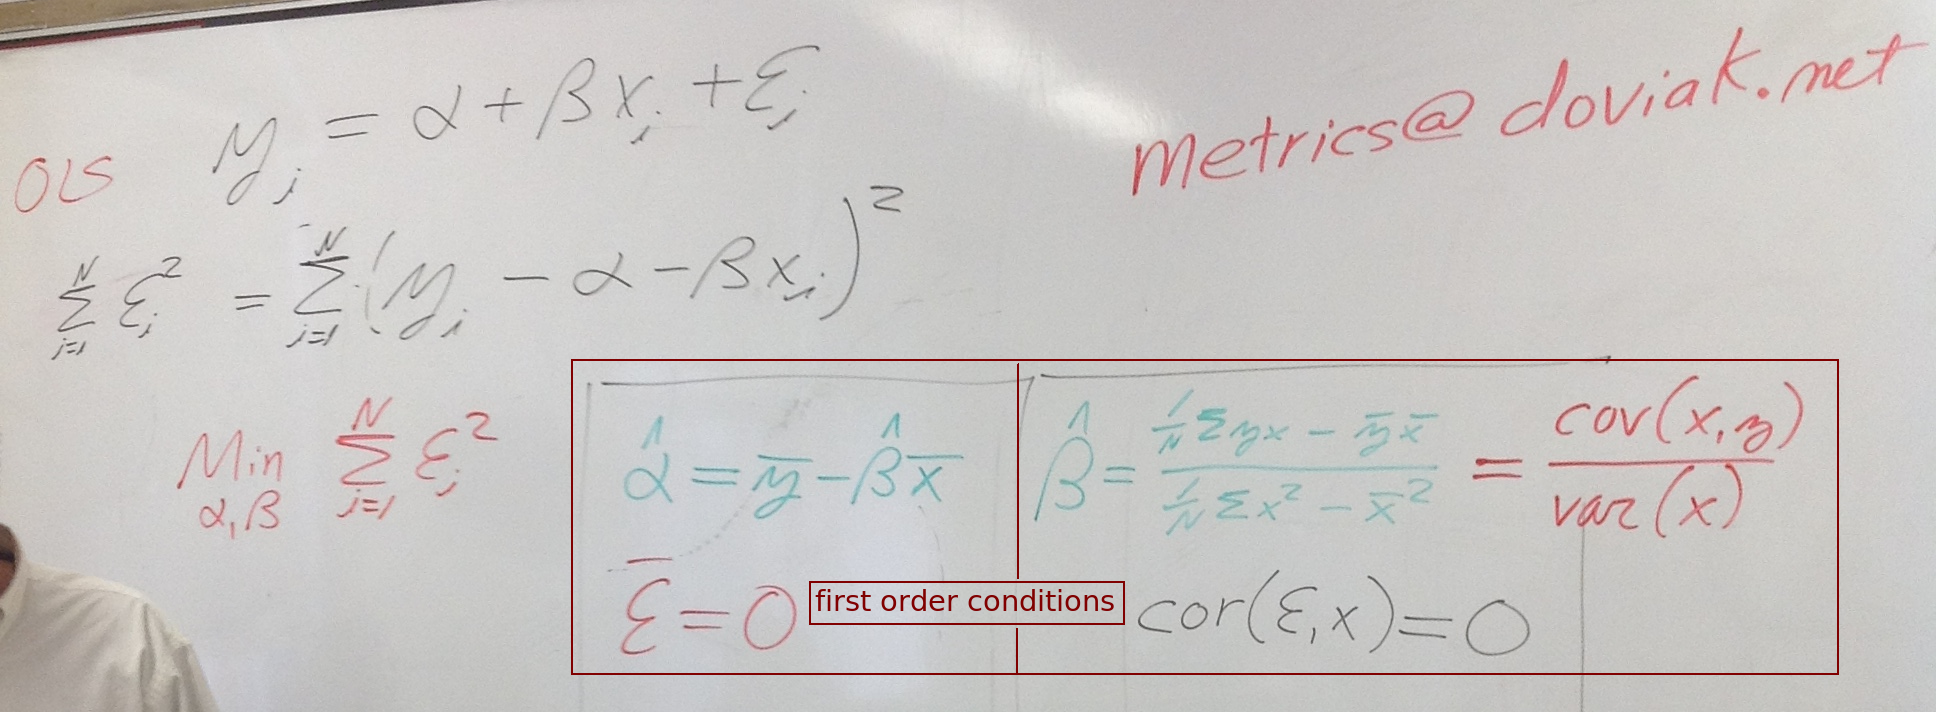 OLS yᵢ = α + βxᵢ + εᵢ
metrics@doviak.net
∑ᵢ₌₁ᴺ εᵢ² = ∑ᵢ₌₁ᴺ (yᵢ − α − βxᵢ)²
Min α,β ∑ᵢ₌₁ᴺ εᵢ²
α̂ = y̅ − β̂x̅
β̂ = (1/N Σyx − y̅x̅) / (1/N Σx² − x̅²) = cov(x,y) / var(x)
ε̅ = 0
first order conditions
cor(ε,x) = 0